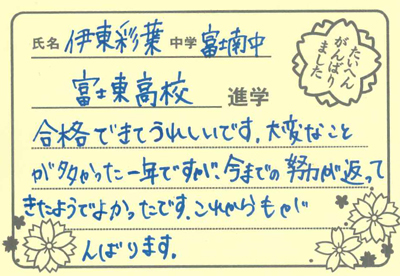 氏名 伊東彩葉 中学 富士南中
たいへん
がんばり
ました
富士東高校 進学
合格できてうれしいです。大変なこと
が多かった一年ですが、今までの努力が返って
きたようでよかったです。これからもが
んばります。